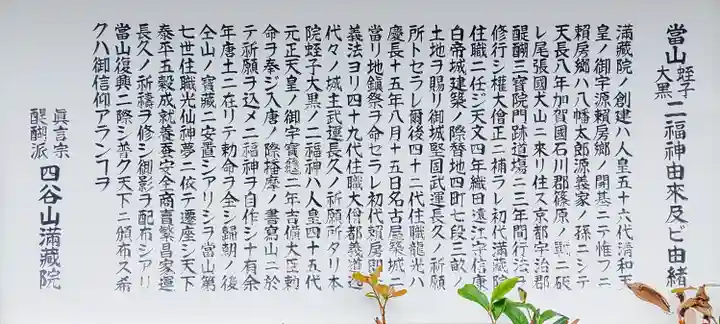 當山 蛭子 大黒 二福神由來及ビ由緒
滿藏院ノ創建ハ人皇五十六代清和天
皇ノ御宇源賴房郷ノ開基ニテ惟フニ
賴房郷ハ八幡太郎源義家ノ孫ニシテ
天長八年加賀國石川郡篠原ノ戰ニ破
レ尾張國犬山ニ來リ住ス京都宇治郡
醍醐三寶院門跡道場ニ三年間行法ヲ
修行シ權大僧正ニ補ラレ初代滿藏院
住職ニ任ジ天文四年織田遠江守信康
白帝城建築ノ際替地四町七段三畝ノ
土地ヲ賜リ御城堅固武運長久ノ祈願
所トセラレ爾後四十二代住職龍光ハ
慶長十五年八月十五日名古屋築城ニ
當リ地鎮祭ヲ命セラレ初代賴房即
義法ヨリ四十九代住職大僧都義道迄
代々ノ城主武運長久ノ祈願所タリ本
院蛭子大黒ノ二福神ハ人皇四十五代
元正天皇ノ御宇寶龜二年吉備大臣勅
命ヲ奉ジ入唐ノ際播摩ノ書寫山ニ於
テ祈願ヲ込メ二福神ヲ自作シ十有余
年唐土ニ在リテ勅命ヲ全シ歸朝ノ後
仝山ノ寶藏ニ安置シアリシヲ當山第
七世住職光仙神夢ニ依テ遷座シ天下
泰平五穀成就養蚕安全商賣繁昌家運
長久ノ祈禱ヲ修シ御影ヲ配布シアリ
當山復興ニ際シ普ク天下ニ頒布ス希
クハ御信仰アランコヲ
眞言宗 醍醐派 四谷山滿藏院